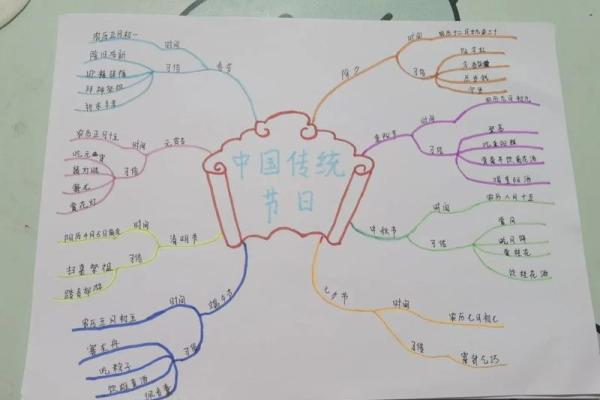 中国传统
节日
春节
时间
农历正月初一
习俗
除旧布新
迎禧接福
拜神祭祖
祈求丰年
元宵节
时间
农历正月十五
习俗
吃元宵
猜灯谜
赏花灯
清明节
时间
阳历4月5日前后
习俗
扫墓祭祖
踏青郊游
端午节
时间
农历五月初五
习俗
赛龙舟
吃粽子
饮雄黄酒
佩香囊
除夕
时间
习俗
贴对联
守岁
重阳节
时间
农历九月初九
习俗
登高
中秋节
时间
农历八月十五
习俗
赏月
吃月饼
赏桂花
饮桂花酒
七夕节
时间
农历七月初七
习俗
穿针乞巧